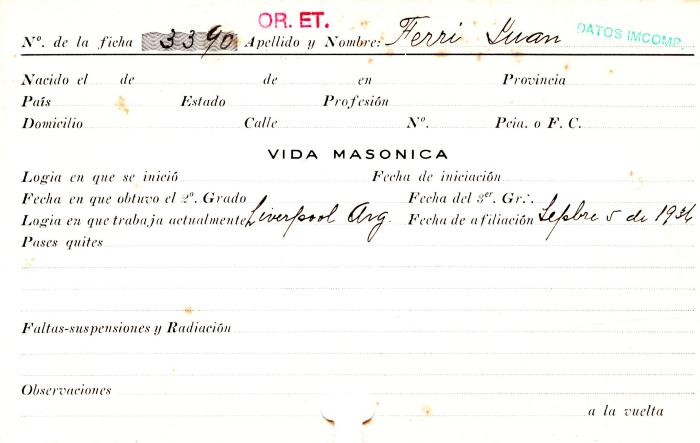 OR. ET.
Nº. de la ficha 3390 Apellido y Nombre: Ferri Juan DATOS IMCOMP.
Nacido el de de en Provincia
País Estado Profesión
Domicilio Calle Nº. Pcia. o F. C.
VIDA MASONICA
Logia en que se inició Fecha de iniciación
Fecha en que obtuvo el 2º. Grado Fecha del 3er. Gr∴.
Logia en que trabaja actualmente Liverpool Arg. Fecha de afiliación Sepbre 5 de
Pases quites
Faltas-suspensiones y Radiación
Observaciones
a la vuelta